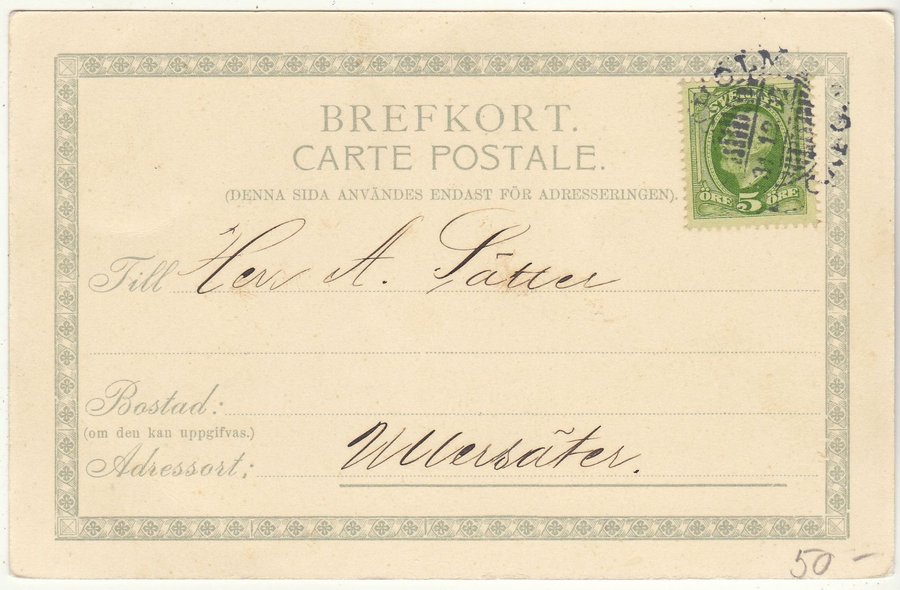 BREFKORT.
CARTE POSTALE.
(DENNA SIDA ANVÄNDES ENDAST FÖR ADRESSERINGEN).
SVERIGE
ÖRE 5 ÖRE
Till Herr A. Sätter
Bostad:
(om den kan uppgifvas.)
Adressort: Ullersäter.
50 –